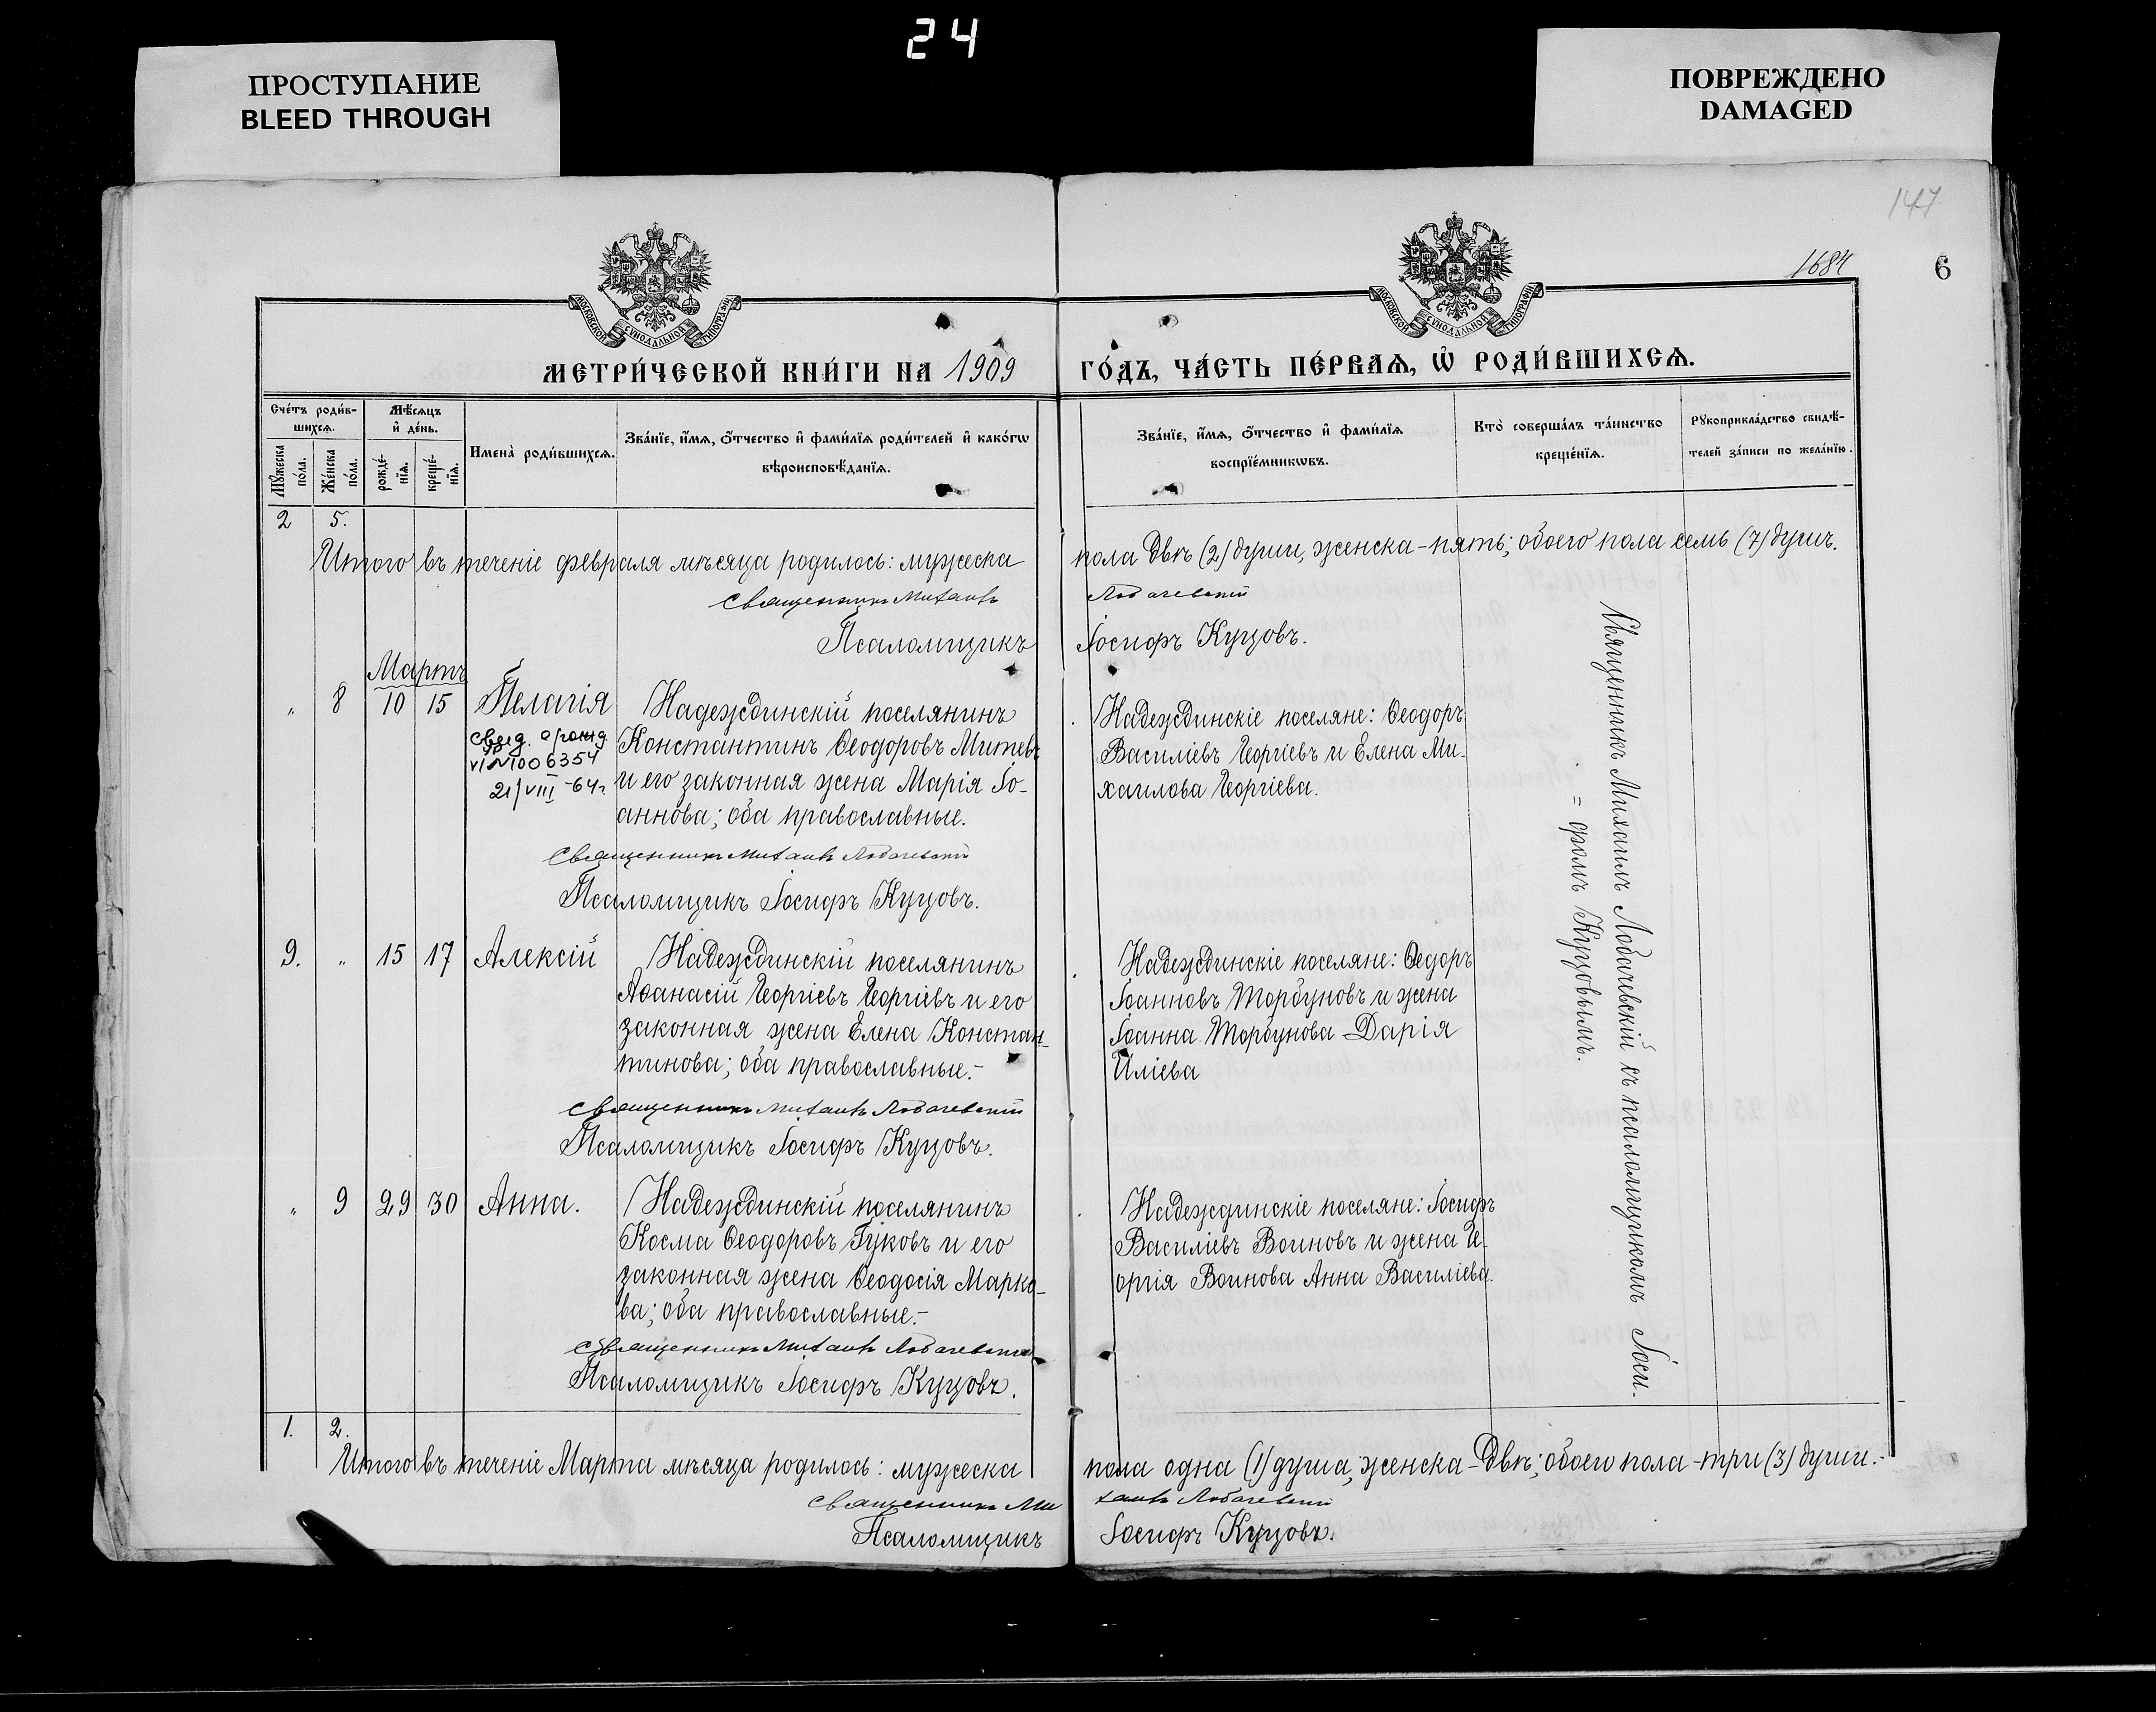 24
ПРОСТУПАНИЕ
BLEED THROUGH
ПОВРЕЖДЕНО
DAMAGED
147
1684
6
МОСКОВСКОЙ СѴНОДАЛЬНОЙ ТИПОГРАФІИ
МОСКОВСКОЙ СѴНОДАЛЬНОЙ ТИПОГРАФІИ
МЕТРИ́ЧЕСКОЙ КНИ́ГИ НА 1909
ГО́ДЪ, ЧА́СТЬ ПЕ́РВАѦ, Ѽ РОДИ́ВШИХСѦ.
Сче́тъ роди́в-
шихсѧ.
Мꙋжеска по́ла.
Же́нска по́ла.
Мѣ́сѧцъ
и҆ де́нь.
рожде́-
нїѧ.
креще́-
нїѧ.
Имена̀ роди́вшихсѧ.
Зва́нїе, и҆́мѧ, ѻ҆́тчество и҆ фами́лїѧ роди́телей и҆ како́гѡ
вѣроисповѣ́данїѧ.
Зва́нїе, и҆́мѧ, ѻ҆́тчество и҆ фами́лїѧ
воспрїе́мникѡвъ.
Кто̀ соверша́лъ та́инство
креще́нїѧ.
Рꙋкоприкла́дство свидѣ́-
телей за́писи по жела́нїю.
2 5.
Итого въ теченіе февраля мѣсяца родилось: мужеска
пола двѣ (2) души, женска-пять; обоего пола семь (7) душъ.
Священникъ Михаилъ
Лобачевскій
Псаломщикъ
Іосифъ Куцовъ.
Мартъ
„ 8 10 15 Пелагія
свид. о рожд.
VI ЯР №006354
21/VIII-64г.
Надеждинскій поселянинъ
Константинъ Ѳеодоровъ Митевъ
и его законная жена Марія Іо-
аннова; оба православные.
Надеждинскіе поселяне: Ѳеодоръ
Василіевъ Георгіевъ и Елена Ми-
хаилова Георгіева.
Священникъ Михаилъ Лобачевскій
Псаломщикъ Іосифъ Куцовъ.
9. „ 15 17 Алексій
Надеждинскій поселянинъ
Аѳанасій Георгіевъ Георгіевъ и его
законная жена Елена Констан-
тинова; оба православные.-
Надеждинскіе поселяне: Ѳедоръ
Іоанновъ Торбуновъ и жена
Іоанна Торбунова-Дарія
Иліева
Священникъ Михаилъ Лобачевскій
Псаломщикъ Іосифъ Куцовъ.
„ 9 29 30 Анна.
Надеждинскій поселянинъ
Косма Ѳеодоровъ Гуковъ и его
законная жена Ѳеодосія Марко-
ва; оба православные.-
Надеждинскіе поселяне: Іосифъ
Василіевъ Воиновъ и жена Ге-
оргія Воинова Анна Василіева.
Священникъ Михаилъ Лобачевскій
Псаломщикъ Іосифъ Куцовъ.
Священникъ Михаилъ Лобачевскій съ псаломщикомъ Іоси-
= фомъ Куцовымъ.
1. 2.
Итого въ теченіе Марта мѣсяца родилось: мужеска
пола одна (1) душа, женска-двѣ; обоего пола-три (3) души.-
Священникъ Ми
хаилъ Лобачевскій
Псаломщикъ
Іосифъ Куцовъ.